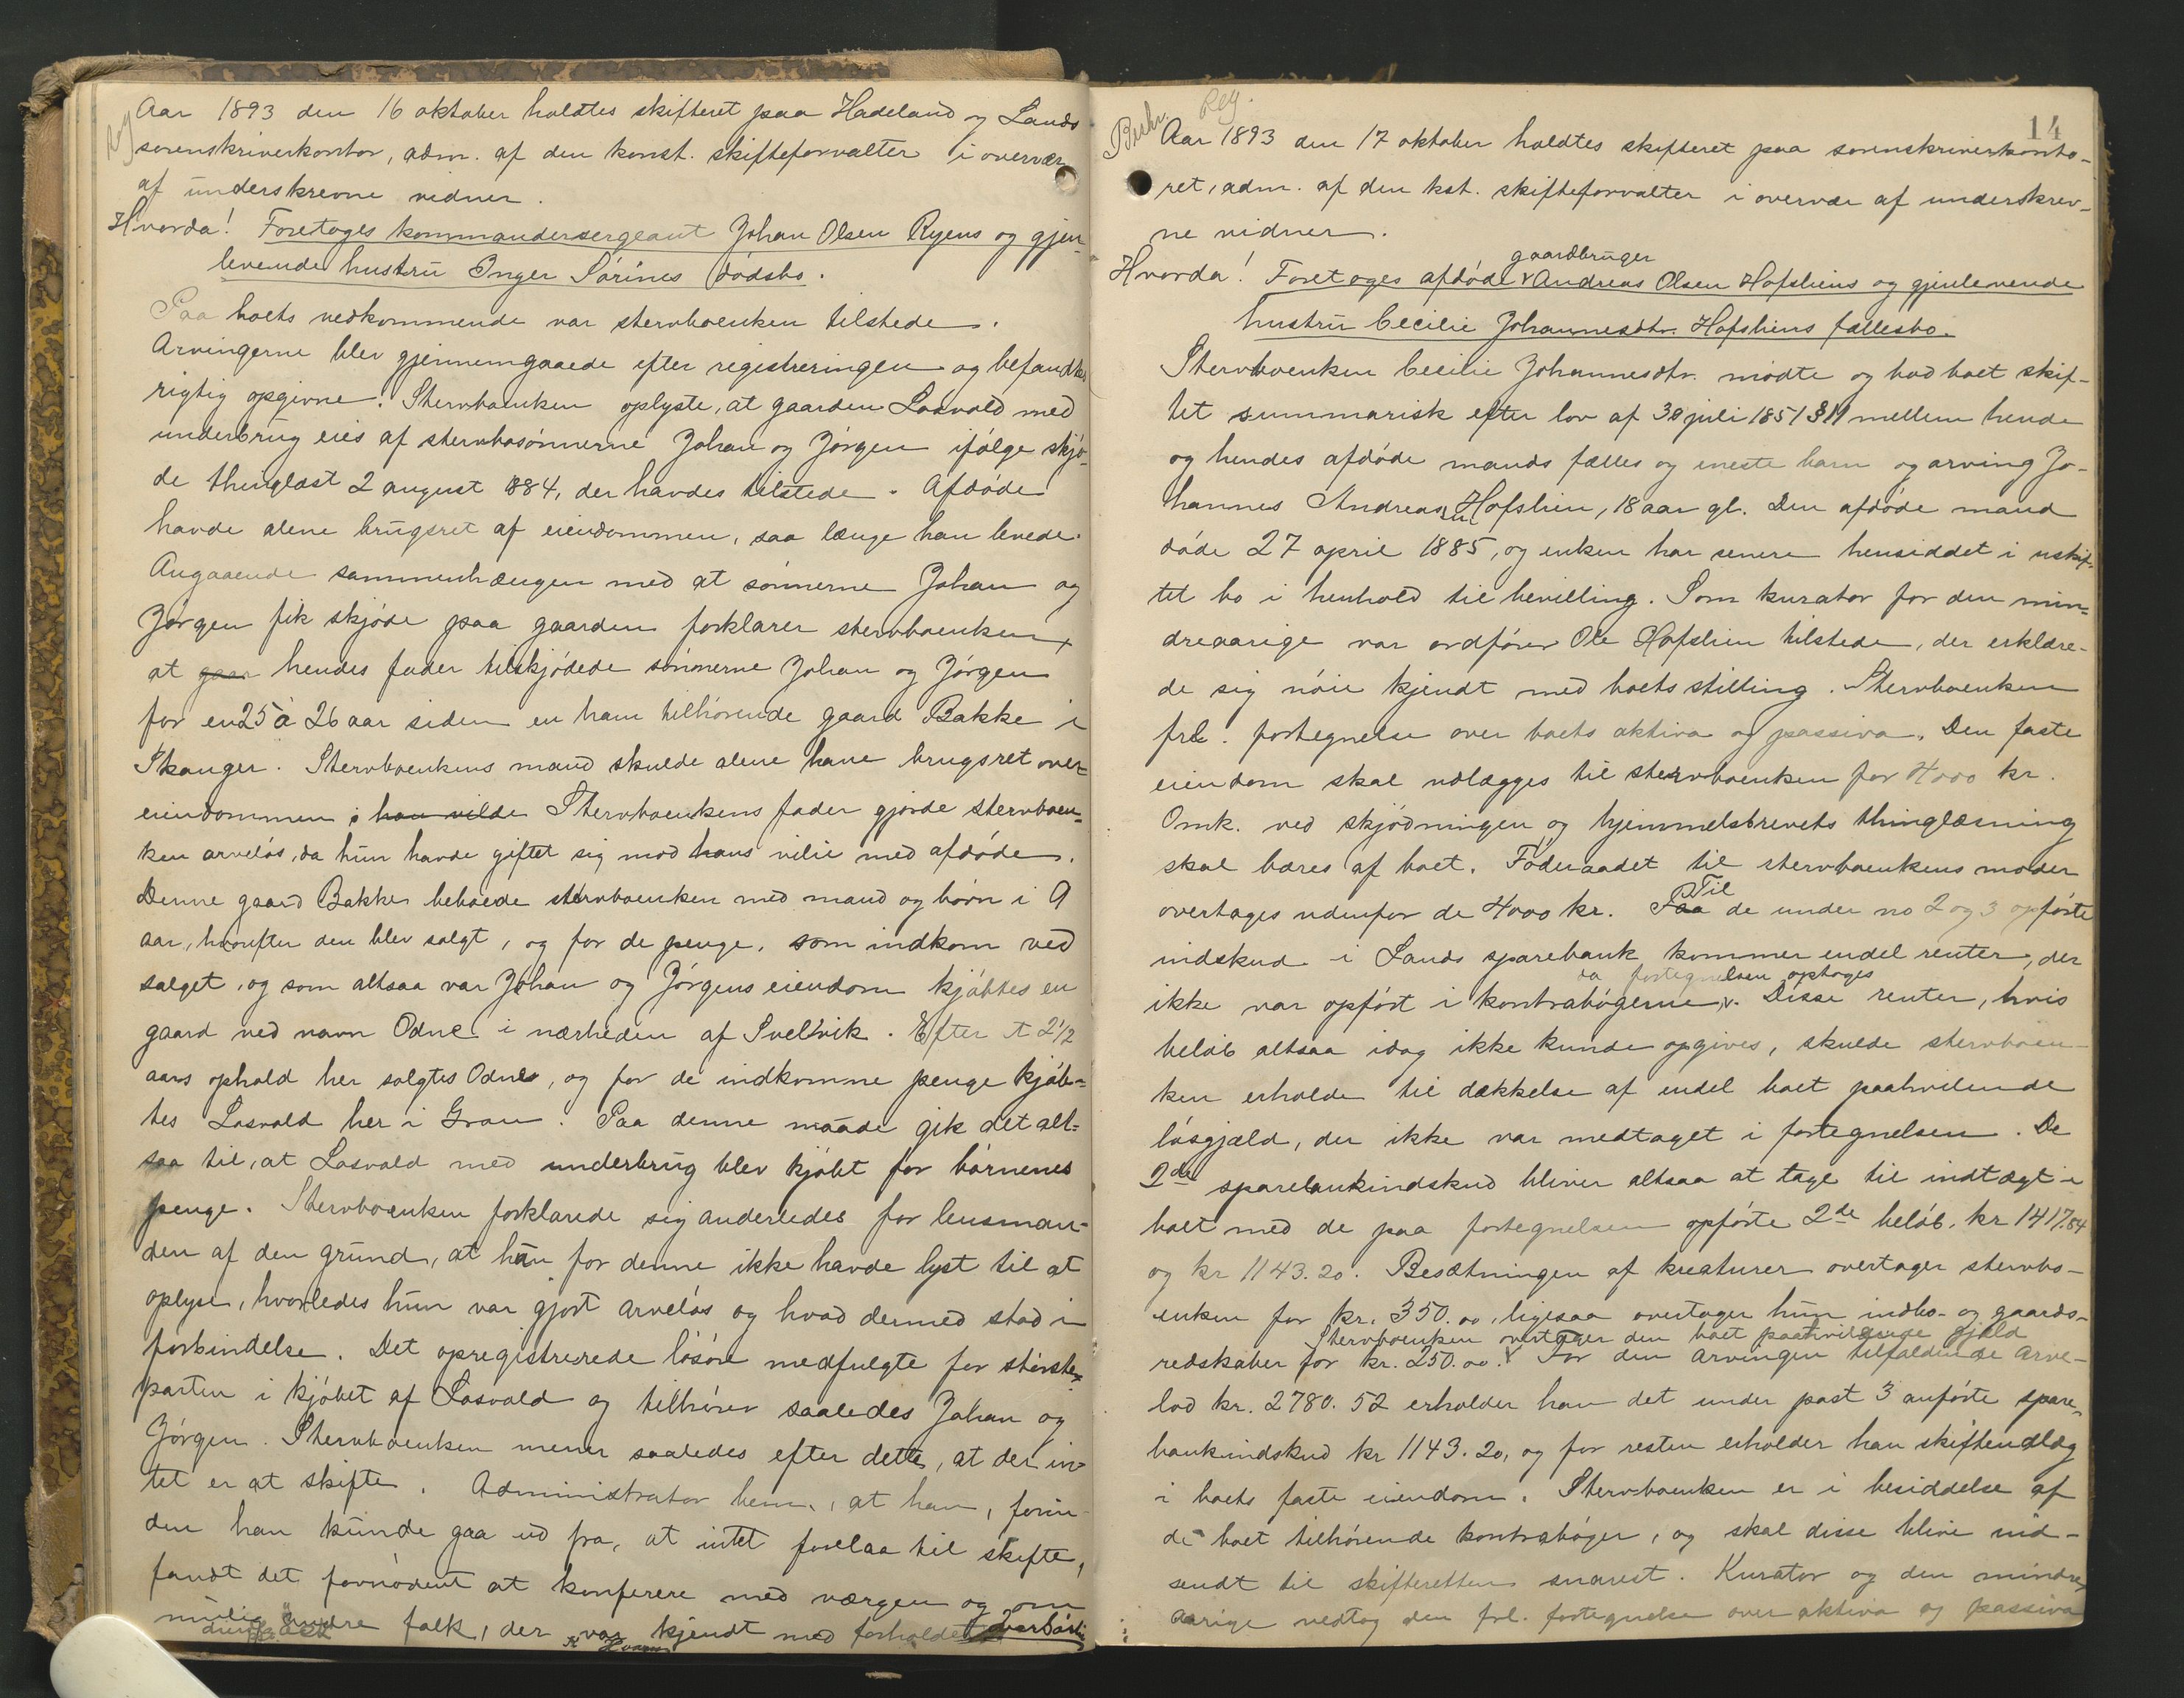 Reg
Aar 1893 den 16 oktober holdtes skifteret paa Hadeland og Lands
sorenskriverkontor, adm. af den konst. skifteforvalter i overvær
af underskrevne vidner.
Hvorda! Foretoges kommandersergeant Johan Olsen Ryens og gjen-
levende hustru Inger Sørines dødsbo.
Paa boets vedkommende var stervboenken tilstede.
Arvingerne blev gjennemgaaede efter registreringen og befandtes
rigtig opgivne. Stervboenken oplyste, at gaarden Losvold med
underbrug eies af stervbosønnerne Johan og Jørgen ifølge skjø-
de thinglæst 2 august 1884, der havdes tilstede. Afdøde
havde alene brugsret af eiendommen, saa længe han levede.
Angaaende sammenhængen med at sønnerne Johan og
Jørgen fik skjøde paa gaarden forklarer stervboenken,
at gaar hendes fader tilskjødede sønnerne Johan og Jørgen
for en 25 à 26 aar siden en ham tilhørende gaard Bakke i
Skauger. Stervboenkens mand skulde alene have brugsret over
eiendommen; han vilde Stervboenkens fader gjorde stervboen-
ken arveløs, da hun havde giftet sig mod hans vilie med afdøde.
Denne gaard Bakke beboede stervboenken med mand og børn i 9
aar, hvorefter den blev solgt, og for de penge, som indkom ved
salget, og som altsaa var Johan og Jørgens eiendom kjøbtes en
gaard ved navn Odne i nærheden af Svelvik. Efter et 2 1/2
aars ophold her solgtes Odnes, og for de indkomne penge kjøb-
tes Losvold her i Gran. Paa denne maade gik det alt-
saa til, at Losvold med underbrug blev kjøbt for børnenes
penge. Stervboenken forklarede sig anderledes for lensman-
den af den grund, at hun for denne ikke havde lyst til at
oplyse, hvorledes hun var gjort arveløs og hvad dermed stod i
forbindelse. Det opregistrerede løsøre medfulgte for største-
parten i kjøbet af Losvold og tilhører saaledes Johan og
Jørgen. Stervboenken mener saaledes efter dette, at der in-
tet er at skifte. Administrator bem., at han, forin-
den han kunde gaa ud fra, at intet forelaa til skifte,
fandt det fornødent at konferere med værgen og om
mulig andre folk, der var kjendt med forholdet.
14
Beskr. Reg.
Aar 1893 den 17 oktober holdtes skifteret paa sorenskriverkonto-
ret, adm. af den kst. skifteforvalter i overvær af underskrev-
ne vidner.
gaardbruger
Hvorda! Foretoges afdøde Andreas Olsen Hofsliens og gjenlevende
hustru Cecilie Johannesdtr. Hofsliens fællesbo.
Stervboenken Cecilie Johannesdtr. mødte og bad boet skif-
tet summarisk efter lov af 30 juli 1851 § 11 mellem hende
og hendes afdøde mands fælles og eneste barn og arving Jo-
hannes Andreasen Hofslien, 18 aar gl. Den afdøde mand
døde 27 april 1885, og enken har senere hensiddet i uskif-
tet bo i henhold til bevilling. Som kurator for den min-
dreaarige var ordfører Ole Hofslien tilstede, der erklære-
de sig nøie kjendt med boets stilling. Stervboenken
frl. fortegnelse over boets aktiva og passiva. Den faste
eiendom skal udlægges til stervboenken for 4000 kr.
Omk. ved skjødningen og hjemmelsbrevets thinglæsning
skal bæres af boet. Føderaadet til stervboenkens moder
overtages udenfor de 4000 kr. Paa Til de under no 2 og 3 opførte
indskud i Lands sparebank kommer endel renter, der
da fortegnelsen optoges
ikke var opført i kontrabøgerne. Disse renter, hvis
beløb altsaa idag ikke kunde opgives, skulde stervboen-
ken erholde til dækkelse af endel boet paahvilende
løsgjæld, der ikke var medtaget i fortegnelsen. De
2de sparebankindskud bliver altsaa at tage til indtægt i
boet med de paa fortegnelsen opførte 2de beløb. kr 1417.84
og kr 1143.20. Besætningen af kreaturer overtager stervbo-
enken for kr. 350.00, ligesaa overtager hun indbo- og gaards-
Stervboenken overtager den boet paahvilende gjæld
redskaber for kr. 250.00. For den arvingen tilfaldende arve-
lod kr. 2780.52 erholder han det under post 3 anførte spare-
bankindskud kr 1143.20, og for resten erholder han skifteudlæg
i boets faste eiendom. Stervboenken er i besiddelse af
de boet tilhørende kontrabøger, og skal disse blive ind-
sendt til skifteretten snarest. Kurator og den mindre-
aarige vedtog den frl. fortegnelse over aktiva og passiva